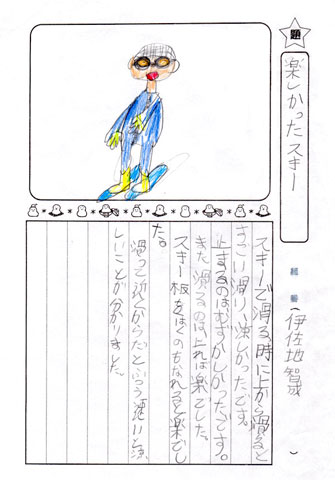 題
楽しかったスキー
組
番
(伊佐地 智哉)
スキーで滑る時に上から滑ると
すっごい滑り、涼しかったです。
止まるのはむずかしかったです。
また滑るのは、上れば楽でした。
スキー板をはくのもなれると楽でし
た。
滑って近くからだとふつう、速いと涼
しいことが分かりました。